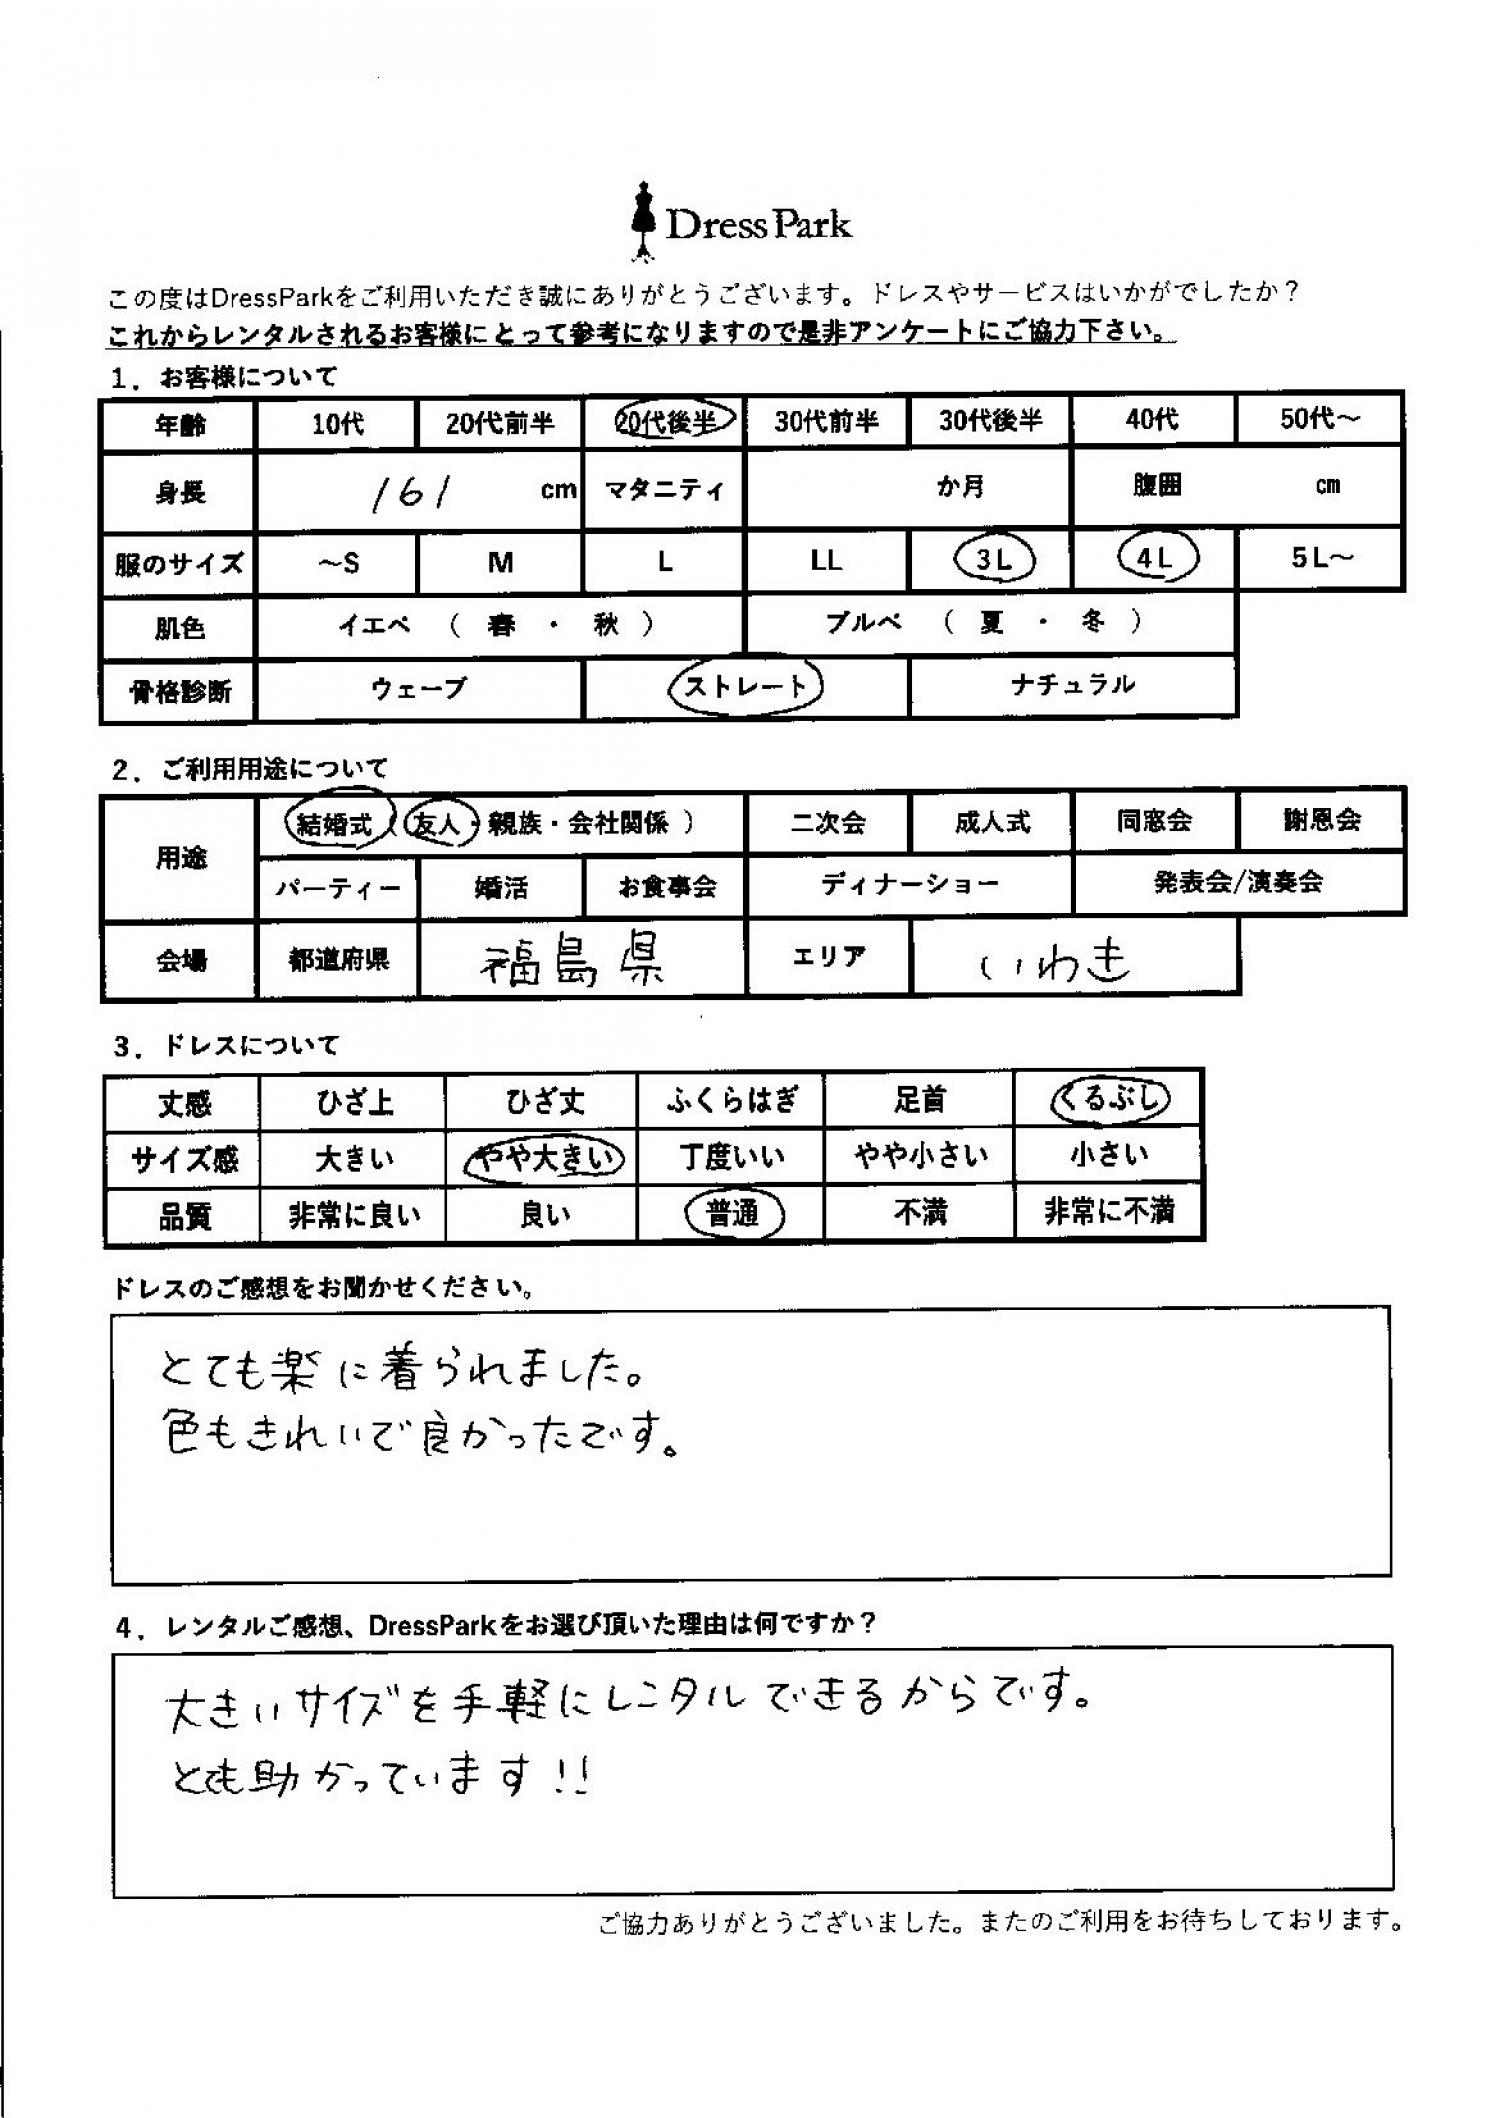 Dress Park
この度はDressParkをご利用いただき誠にありがとうございます。ドレスやサービスはいかがでしたか？
これからレンタルされるお客様にとって参考になりますので是非アンケートにご協力下さい。
1．お客様について
年齢 10代 20代前半 20代後半 30代前半 30代後半 40代 50代～
身長 161 cm マタニティ か月 腹囲 cm
服のサイズ ～S M L LL 3L 4L 5L～
肌色 イエベ （ 春 ・ 秋 ） ブルベ （ 夏 ・ 冬 ）
骨格診断 ウェーブ ストレート ナチュラル
2．ご利用用途について
用途 結婚式（友人・親族・会社関係） 二次会 成人式 同窓会 謝恩会
パーティー 婚活 お食事会 ディナーショー 発表会/演奏会
会場 都道府県 福島県 エリア いわき
3．ドレスについて
丈感 ひざ上 ひざ丈 ふくらはぎ 足首 くるぶし
サイズ感 大きい やや大きい 丁度いい やや小さい 小さい
品質 非常に良い 良い 普通 不満 非常に不満
ドレスのご感想をお聞かせください。
とても楽に着られました。
色もきれいで良かったです。
4．レンタルご感想、DressParkをお選び頂いた理由は何ですか？
大きいサイズを手軽にレンタルできるからです。
とても助かっています!!
ご協力ありがとうございました。またのご利用をお待ちしております。